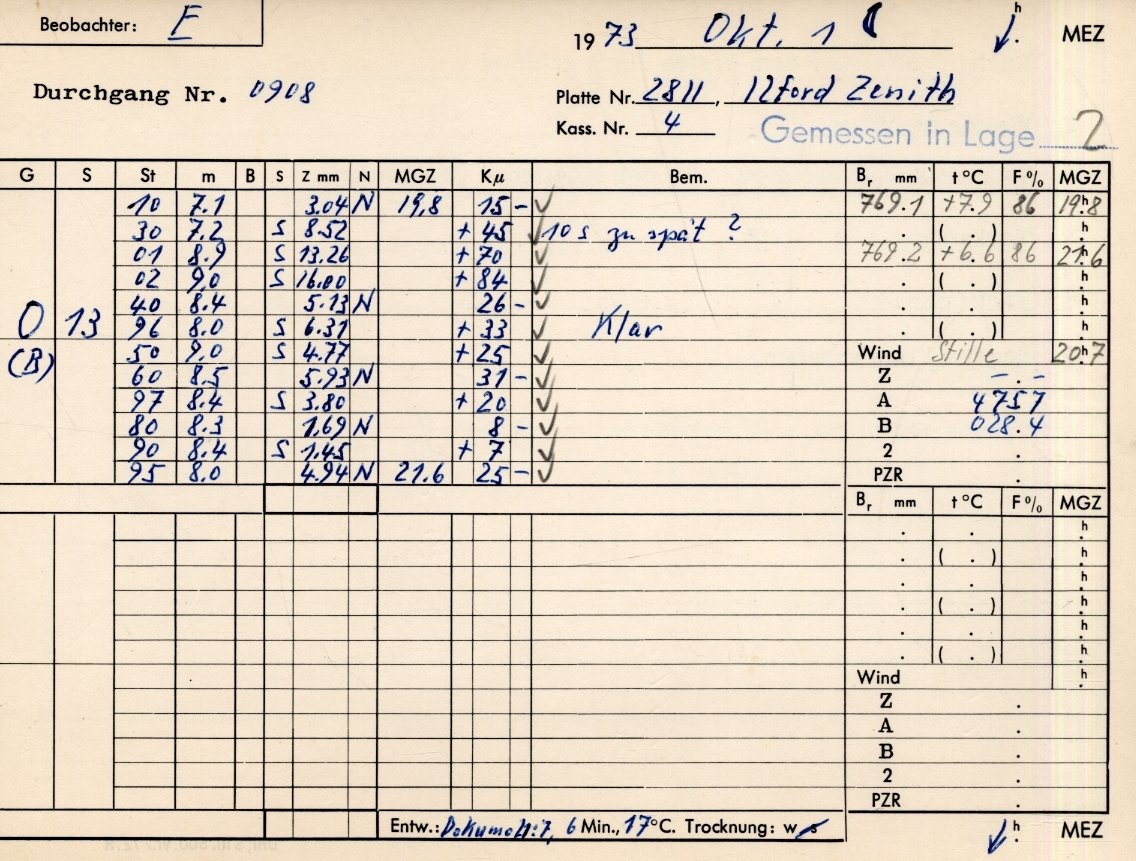 Beobachter: E
1973 Okt. 1 h MEZ
Durchgang Nr. 0908
Platte Nr. 2811, Ilford Zenith
Kass. Nr. 4
Gemessen in Lage 2
G S St m B S Z mm N MGZ Kμ Bem. Br mm t°C F% MGZ
10 7.1 3.04 N 19,8 15 - 769.1 +7.9 86 19h8
30 7.2 S 8.52 + 45 10 s zu spät ? . ( . ) h
01 8.9 S 13.26 + 70 769.2 +6.6 86 21h6
02 9,0 S 16.00 + 84 . ( . ) h
40 8.4 5.13 N 26 - . . h
O 13 96 8.0 S 6.31 + 33 Klar . ( . ) h
(B) 50 9,0 S 4.77 + 25 Wind Stille 20h7
60 8.5 5.93 N 31 - Z - . -
97 8.4 S 3.80 + 20 A 4757
80 8.3 1.69 N 8 - B 028.4
90 8.4 S 1.45 + 7 2 .
95 8.0 4.94 N 21.6 25 - PZR .
Br mm t°C F% MGZ
. . h
. ( . ) h
. . h
. ( . ) h
. . h
. ( . ) h
Wind h
Z .
A .
B .
2 .
PZR .
Entw.: 6 Min., 17°C. Trocknung: w s h MEZ